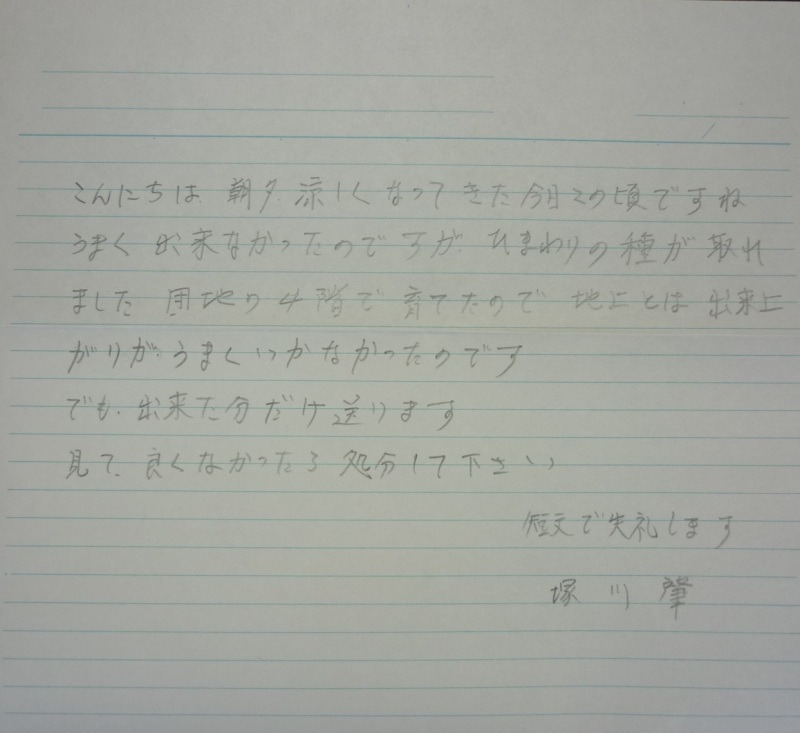 こんにちは 朝夕 涼しくなってきた今日この頃ですね
うまく出来なかったのですが ひまわりの種が取れ
ました 団地の4階で育てたので 地上とは出来上
がりがうまくいかなかったのです
でも 出来た分だけ送ります
見て 良くなかったら処分して下さい
短文で失礼します
塚川 肇